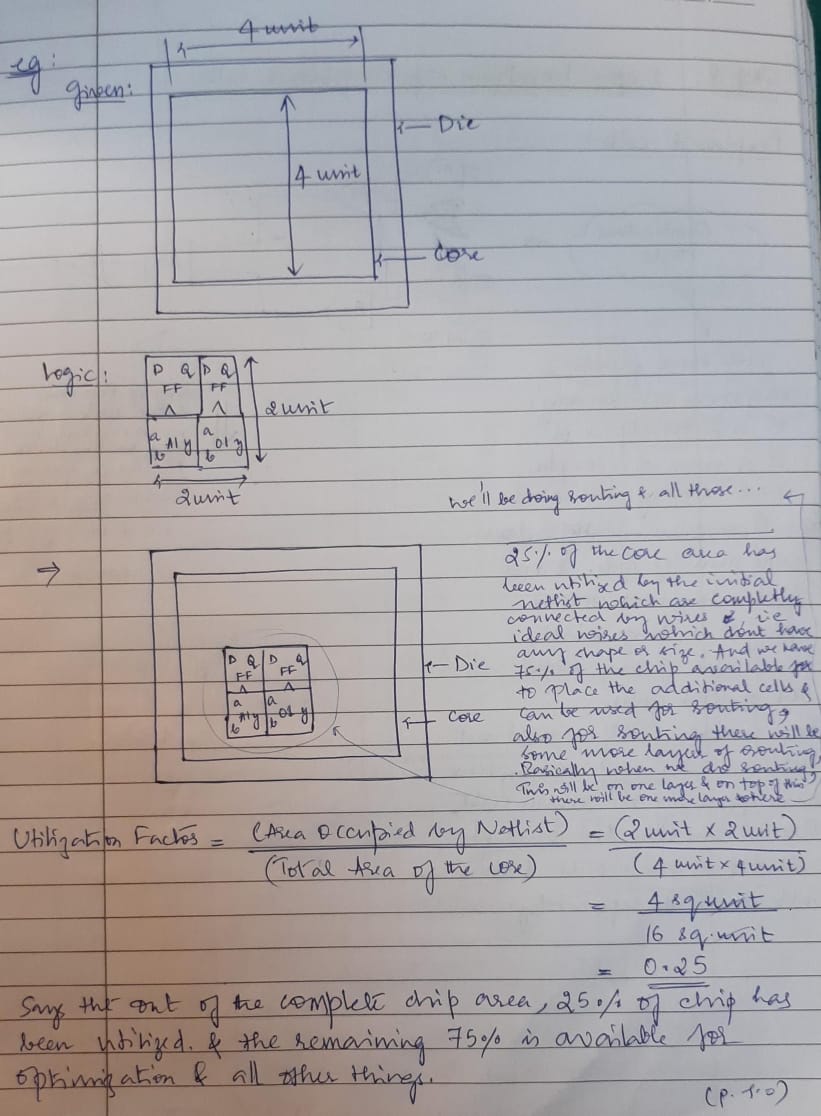 4 unit
eg:
given:
Die
4 unit
Core
Logic:
D Q D Q
FF FF
2 unit
a a
A1 y O1 y
b b
2 unit
we'll be doing routing & all those...
25% of the core area has
been utilized by the initial
netlist which are completly
connected by wires &, ie
ideal wires which dont have
any shape or size. And we have
75% of the chip available for
to place the additional cells &
can be used for routing,
also for routing there will be
some more layer of routing.
Basically when we do routing
This will be on one layer & on top of this
there will be one more layer
⇒
D Q D Q
FF FF
a a
A1 y O1 y
b b
Die
Core
Utilization Factor = (Area Occupied by Netlist) = (2 unit x 2 unit)
(Total Area of the core) (4 unit x 4 unit)
= 4 sq unit
16 sq. unit
= 0.25
Says tht out of the complete chip area, 25% of chip has
been utilized. & the remaining 75% is available for
optimization & all other things.
(P.T.O)